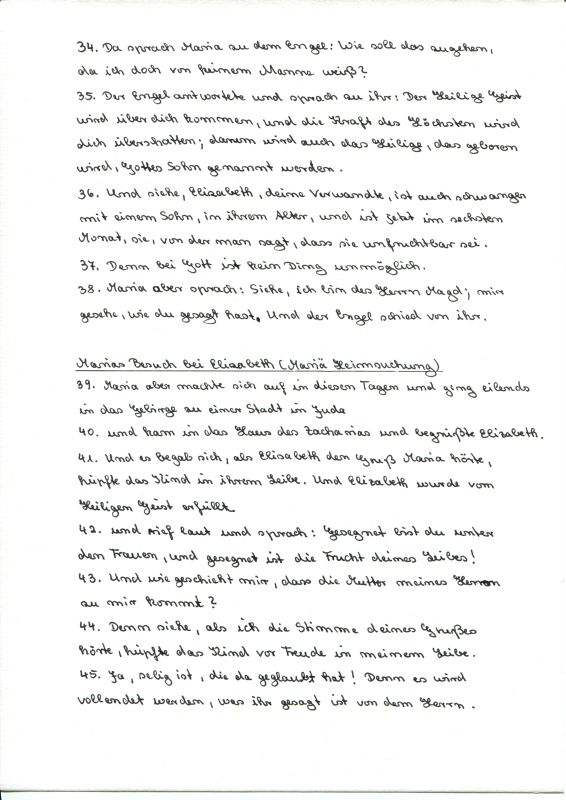 34. Da sprach Maria zu dem Engel: Wie soll das zugehen,
da ich doch von keinem Manne weiß?
35. Der Engel antwortete und sprach zu ihr: Der Heilige Geist
wird über dich kommen, und die Kraft des Höchsten wird
dich überschatten; darum wird auch das Heilige, das geboren
wird, Gottes Sohn genannt werden.
36. Und siehe, Elisabeth, deine Verwandte, ist auch schwanger
mit einem Sohn, in ihrem Alter, und ist jetzt im sechsten
Monat, sie, von der man sagt, dass sie unfruchtbar sei.
37. Denn bei Gott ist kein Ding unmöglich.
38. Maria aber sprach: Siehe, ich bin des Herrn Magd; mir
geschehe, wie du gesagt hast. Und der Engel schied von ihr.
Marias Besuch bei Elisabeth (Mariä Heimsuchung)
39. Maria aber machte sich auf in diesen Tagen und ging eilends
in das Gebirge zu einer Stadt in Juda
40. und kam in das Haus des Zacharias und begrüßte Elisabeth.
41. Und es begab sich, als Elisabeth den Gruß Maria hörte,
hüpfte das Kind in ihrem Leibe. Und Elisabeth wurde vom
Heiligen Geist erfüllt
42. und rief laut und sprach: Gesegnet bist du unter
den Frauen, und gesegnet ist die Frucht deines Leibes!
43. Und wie geschieht mir, dass die Mutter meines Herrn
zu mir kommt?
44. Denn siehe, als ich die Stimme deines Grußes
hörte, hüpfte das Kind vor Freude in meinem Leibe.
45. Ja, selig ist, die da geglaubt hat! Denn es wird
vollendet werden, was ihr gesagt ist von dem Herrn.